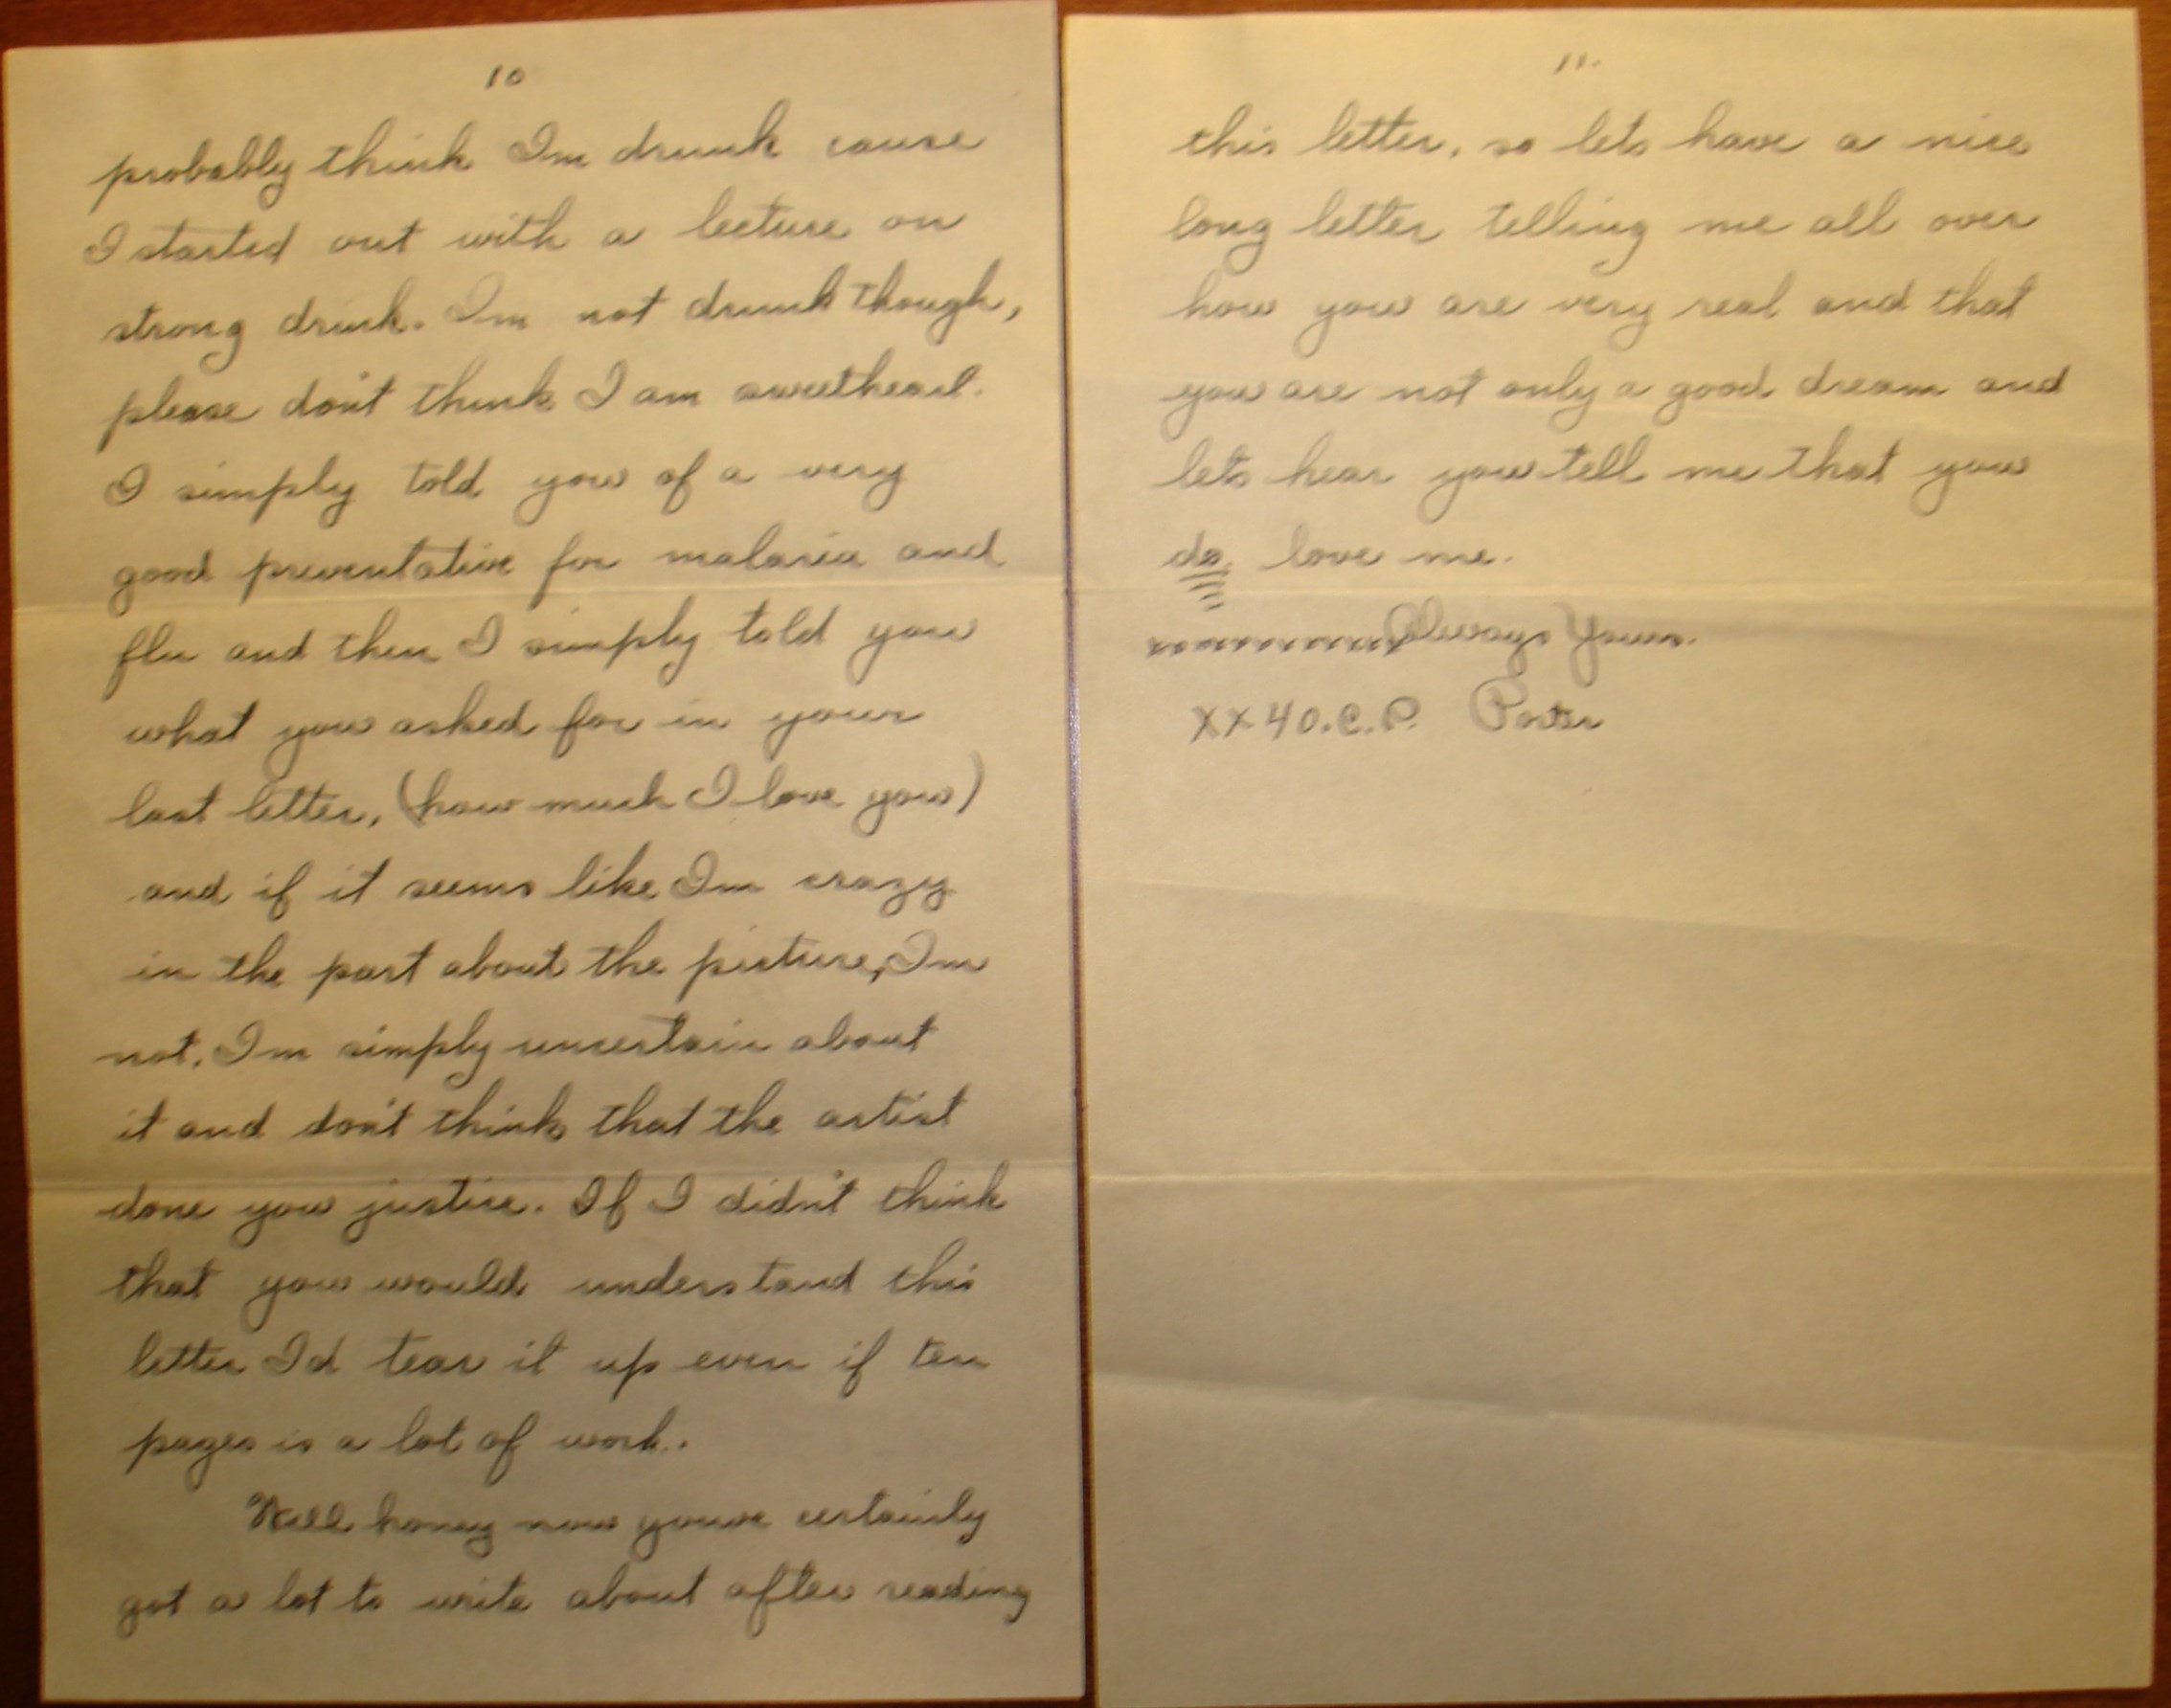 10
probably think Im drunk cause
I started out with a lecture on
strong drink. Im not drunk though,
please don't think I am sweetheart.
I simply told you of a very
good preventative for malaria and
flu and then I simply told you
what you asked for in your
last letter, (how much I love you)
and if it seems like Im crazy
in the part about the picture, Im
not. Im simply uncertain about
it and don't think that the artist
done you justice. If I didn't think
that you would understand this
letter Id tear it up even if ten
pages is a lot of work.
Well honey now youve certainly
got a lot to write about after reading
11.
this letter, so lets have a nice
long letter telling me all over
how you are very real and that
you are not only a good dream and
lets hear you tell me that you
do love me.
Always Yours.
XX40.C.P. Porter